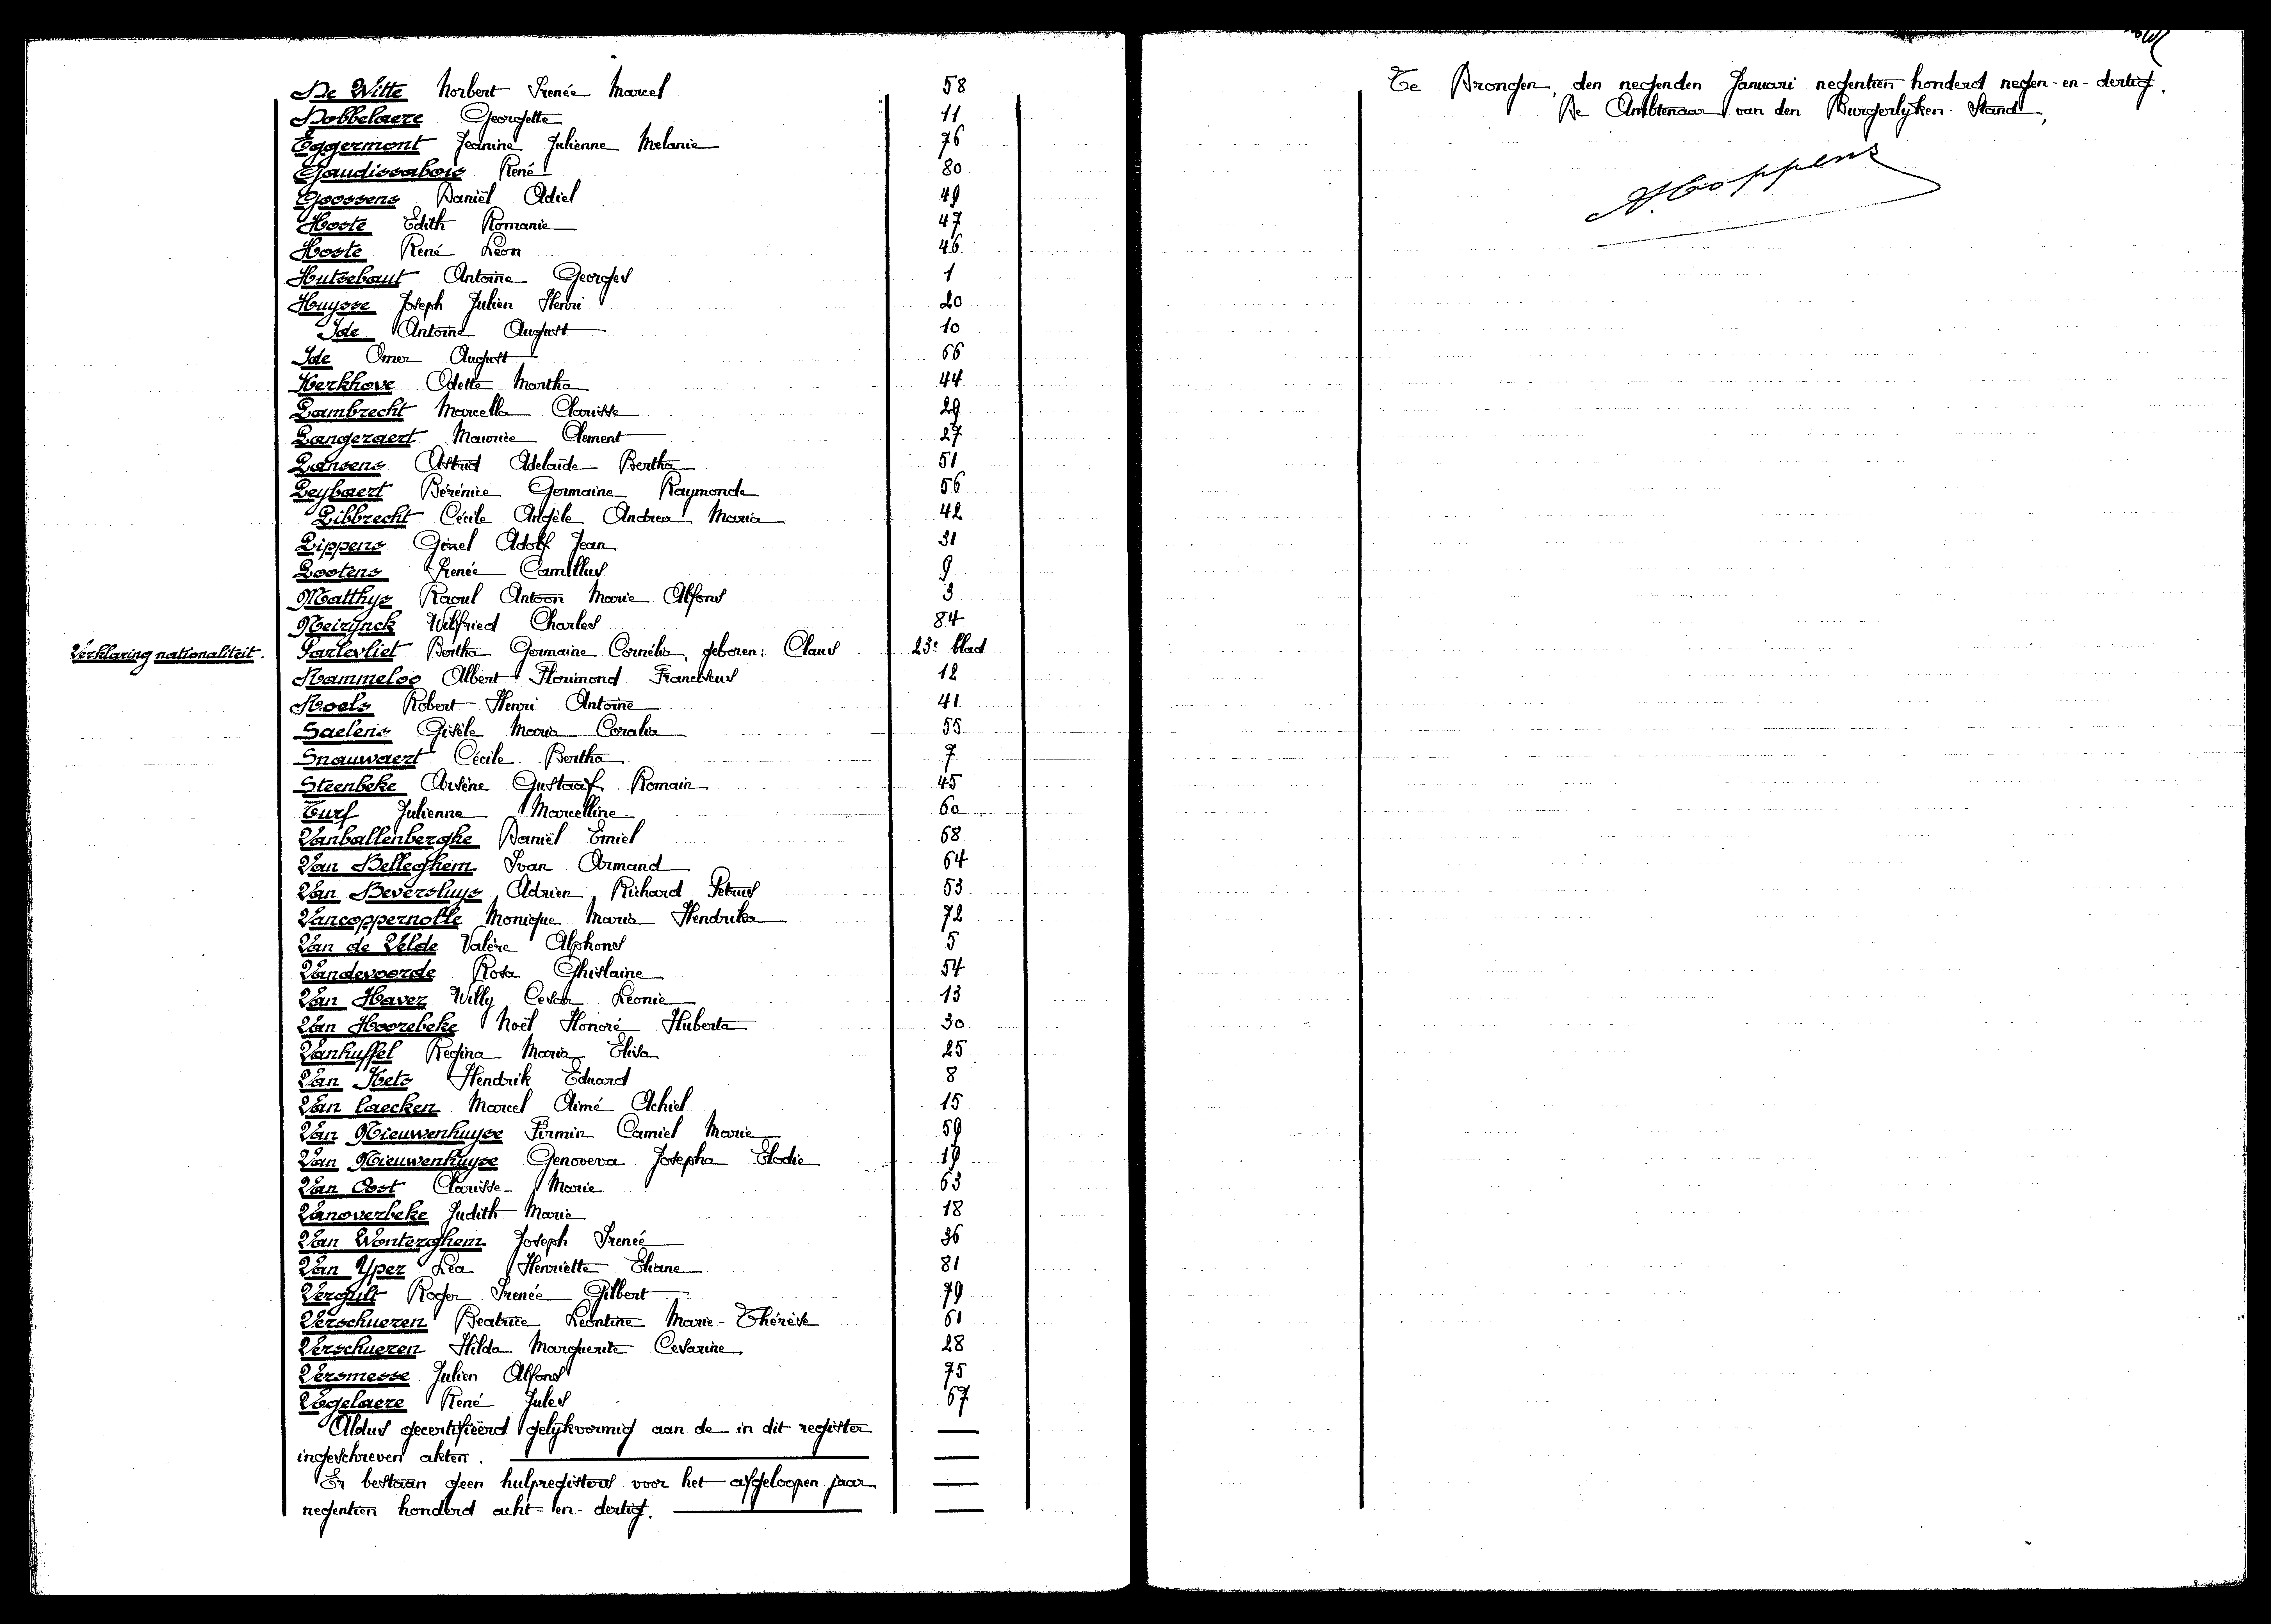 De Witte Norbert Irenée Marcel 58
Dobbelaere Georgette 11
Eggermont Jeanine Julienne Melanie 76
Gaudissabois René 80
Goossens Daniël Adiel 49
Hoste Edith Romanie 47
Hoste René Léon 46
Hutsebaut Antoine Georges 1
Huysse Joseph Julien Henri 20
Ide Antoine August 10
Ide Omer August 66
Kerkhove Odette Martha 44
Lambrecht Marcella Clarisse 29
Langeraert Maurice Clement 27
Lansens Astrid Adelaïde Bertha 51
Leybaert Bérénice Germaine Raymonde 56
Libbrecht Cécile Angèle Andrea Maria 42
Lippens Ginel Adolf Jean 31
Lootens Irenée Camillus 9
Matthys Raoul Antoon Marie Alfons 3
Neirynck Wilfried Charles 84
Verklaring nationaliteit. Parlevliet Bertha Germaine Cornélia, geboren: Claus 23e blad
Rammeloo Albert Florimond Franciscus 12
Roels Robert Henri Antoine 41
Saelens Gisèle Maria Coralia 55
Snauwaert Cécile Bertha 7
Steenbeke Arsène Gustaaf Romain 45
Turf Julienne Marcelline 60
Vanballenberghe Daniël Emiel 68
Van Belleghem Ivan Armand 64
Van Beversluys Adrien Richard Petrus 53
Vancoppernolle Monique Maria Hendrika 72
Van de Velde Valère Alphons 5
Vandevoorde Rosa Ghislaine 54
Van Haver Willy Cesar Léonie 13
Van Hoorebeke Noël Honoré Huberta 30
Vanhuffel Regina Maria Elisa 25
Van Kets Hendrik Eduard 8
Van Laecken Marcel Aimé Achiel 15
Van Nieuwenhuyse Firmin Camiel Marie 59
Van Nieuwenhuyse Genoveva Josepha Elodie 19
Van Oost Clarisse Marie 63
Vanoverbeke Judith Marie 18
Van Wonterghem Joseph Irenée 36
Van Yper Léa Henriette Eliane 81
Vergult Roger Irenée Gilbert 79
Verschueren Beatrice Léontine Marie-Thérèse 61
Verschueren Hilda Marguerite Cesarine 28
Versmesse Julien Alfons 75
Vogelaere René Jules 67
Aldus gecertifieerd gelijkvormig aan de in dit register
ingeschreven akten.
Er bestaan geen hulpregisters voor het afgeloopen jaar
negentien honderd acht-en-dertig.
Te Drongen, den negenden Januari negentien honderd negen-en-dertig.
De Ambtenaar van den Burgerlijken Stand,